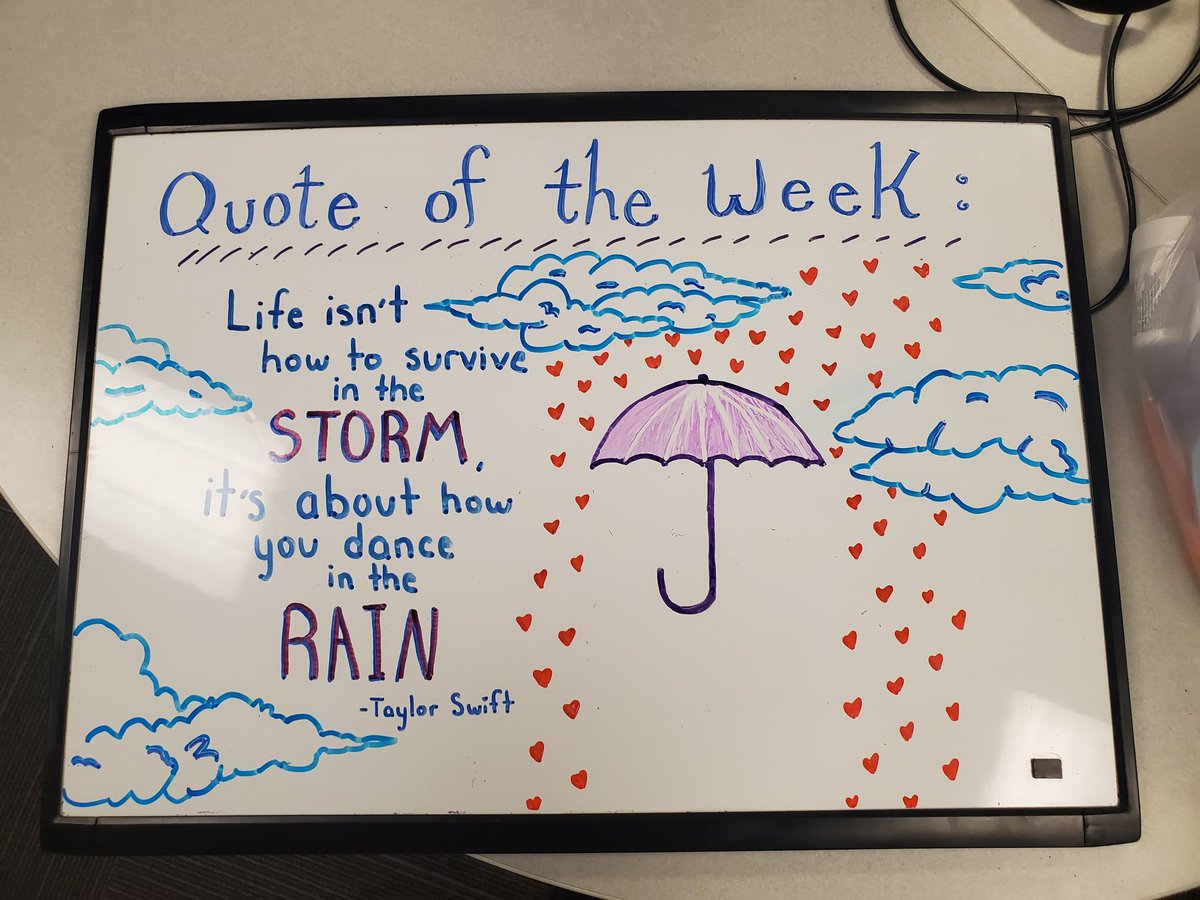 Quote of the Week:
Life isn't
how to survive
in the
STORM,
it's about how
you dance
in the
RAIN
-Taylor Swift